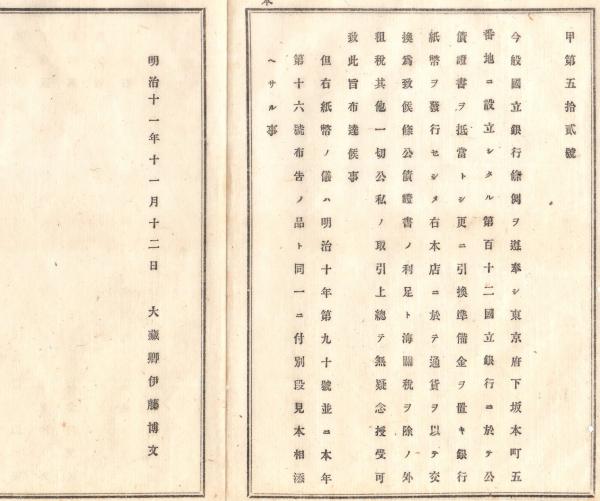 甲第五拾貳號
今般國立銀行條例ヲ遵奉シ東京府下坂本町五
番地ニ設立シタル第百十二國立銀行ニ於テ公
債證書ヲ抵當トシ更ニ引換準備金ヲ置キ銀行
紙幣ヲ發行セシメ右本店ニ於テ通貨ヲ以テ交
換爲致候條公債證書ノ利足ト海關税ヲ除ノ外
租税其他一切公私ノ取引上總テ無疑念授受可
致此旨布達候事
但右紙幣ノ儀ハ明治十年第九十號並ニ本年
第十六號布告ノ品ト同一ニ付別段見本相添
ヘサル事
明治十一年十一月十二日 大藏卿伊藤博文